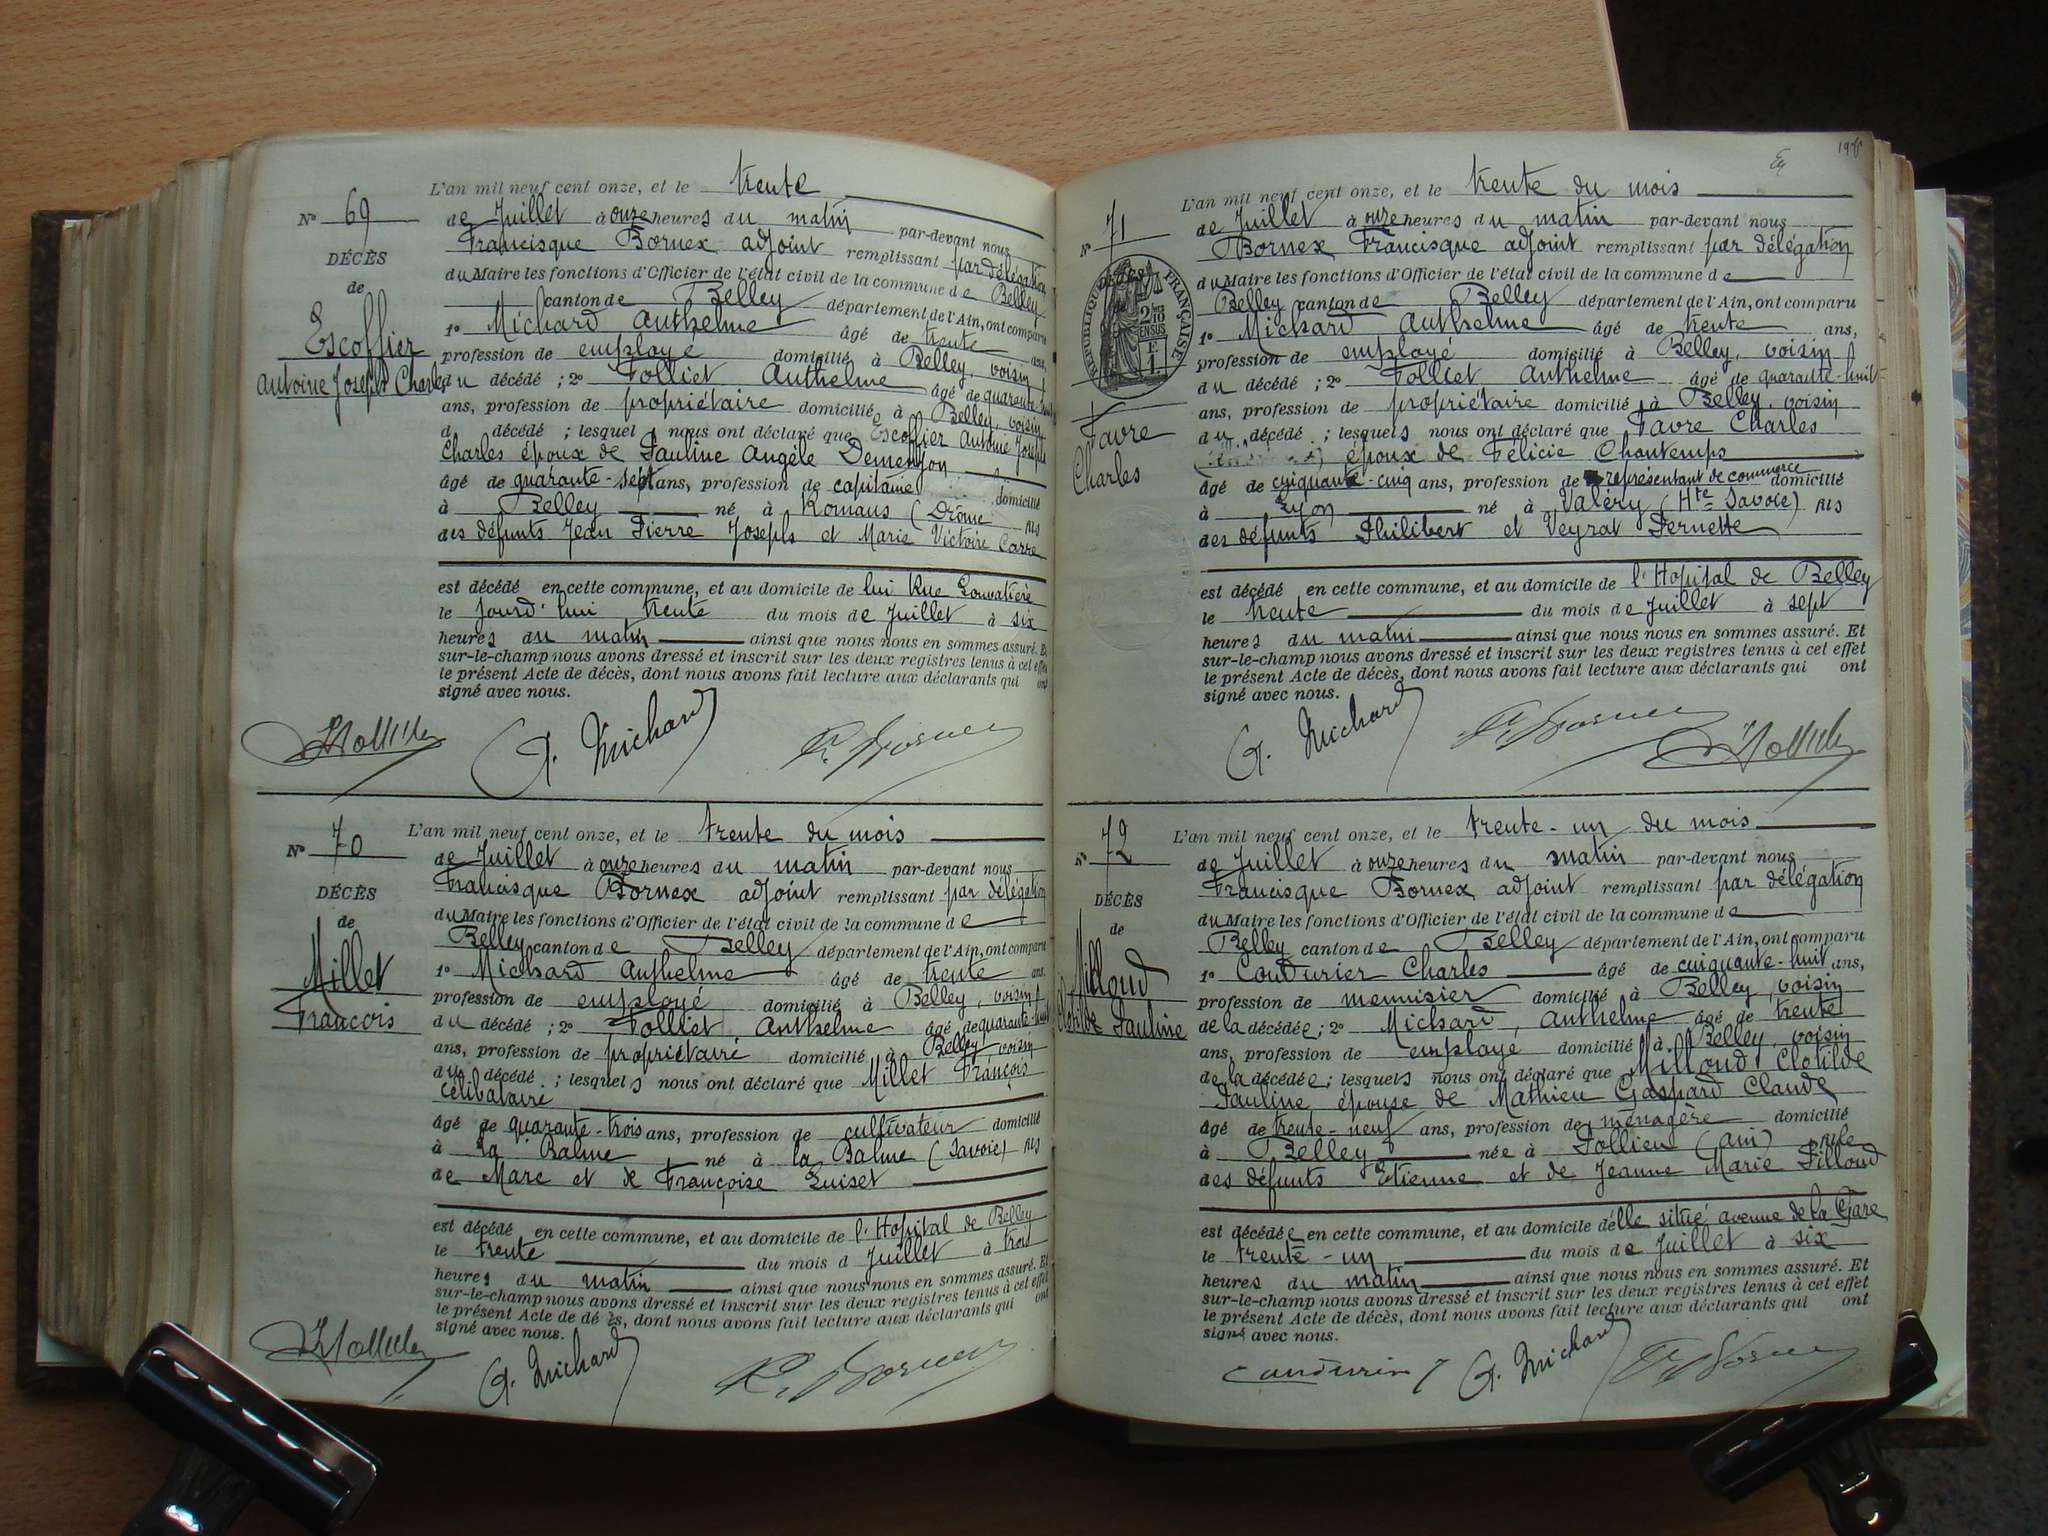 L'an mil neuf cent onze, et le trente
N° 69
de Juillet à onze heures du matin par-devant nous
Francisque Bornex adjoint remplissant par délégation
DÉCÈS
du Maire les fonctions d'Officier de l'état civil de la commune de Belley
de
canton de Belley département de l'Ain, ont comparu
Escoffier
1° Michard Anthelme âgé de trente ans,
profession de employé domicilié à Belley, voisin
Antoine Joseph Charles
du décédé ; 2° Folliet Anthelme âgé de quarante-huit
ans, profession de propriétaire domicilié à Belley, voisin
d décédé ; lesquels nous ont déclaré que Escoffier Antoine Joseph
Charles époux de Pauline Angèle Demenjon
âgé de quarante-sept ans, profession de capitaine domicilié
à Belley né à Romans (Drôme fils
des défunts Jean Pierre Joseph et Marie Victoire Carre
est décédé en cette commune, et au domicile de lui Rue
le jourd'hui trente du mois de Juillet à six
heures du matin ainsi que nous nous en sommes assuré. Et
sur-le-champ nous avons dressé et inscrit sur les deux registres tenus à cet effet
le présent Acte de décès, dont nous avons fait lecture aux déclarants qui ont
signé avec nous.
A. Michard
L'an mil neuf cent onze, et le trente du mois
N° 70
de Juillet à onze heures du matin par-devant nous
Francisque Bornex adjoint remplissant par délégation
DÉCÈS
du Maire les fonctions d'Officier de l'état civil de la commune de
de
Belley canton de Belley département de l'Ain, ont comparu
Millet
1° Michard Anthelme âgé de trente ans,
profession de employé domicilié à Belley, voisin
François
du décédé ; 2° Folliet Anthelme âgé de quarante-huit
ans, profession de propriétaire domicilié à Belley, voisin
du décédé ; lesquels nous ont déclaré que Millet François
célibataire
âgé de quarante-trois ans, profession de cultivateur domicilié
à La Balme né à la Balme (Savoie) fils
de Marc et de Françoise Guiset
est décédé en cette commune, et au domicile de l'Hopital de Belley
le trente du mois d Juillet à trois
heures du matin ainsi que nous nous en sommes assuré. Et
sur-le-champ nous avons dressé et inscrit sur les deux registres tenus à cet effet
le présent Acte de décès, dont nous avons fait lecture aux déclarants qui ont
signé avec nous.
A. Michard
L'an mil neuf cent onze, et le trente du mois
N° 71
de Juillet à onze heures du matin par-devant nous
Bornex Francisque adjoint remplissant par délégation
du Maire les fonctions d'Officier de l'état civil de la commune de
RÉPUBLIQUE FRANÇAISE
Belley canton de Belley département de l'Ain, ont comparu
1° Michard Anthelme âgé de trente ans,
profession de employé domicilié à Belley, voisin
du décédé ; 2° Folliet Anthelme âgé de quarante-huit
ans, profession de propriétaire domicilié à Belley, voisin
Favre
Charles
du décédé ; lesquels nous ont déclaré que Favre Charles
époux de Félicie Chantemps
âgé de cinquante-cinq ans, profession de représentant de commerce domicilié
à Lyon né à Valéry (Hte Savoie) fils
des défunts Philibert et Veyrat Pernette
est décédé en cette commune, et au domicile de l'Hopital de Belley
le trente du mois de Juillet à sept
heures du matin ainsi que nous nous en sommes assuré. Et
sur-le-champ nous avons dressé et inscrit sur les deux registres tenus à cet effet
le présent Acte de décès, dont nous avons fait lecture aux déclarants qui ont
signé avec nous.
A. Michard
L'an mil neuf cent onze, et le trente-un du mois
N° 72
de Juillet à onze heures du matin par-devant nous
Francisque Bornex adjoint remplissant par délégation
DÉCÈS
du Maire les fonctions d'Officier de l'état civil de la commune de
de
Belley canton de Belley département de l'Ain, ont comparu
Milloud
1° Coudurier Charles âgé de cinquante-huit ans,
profession de menuisier domicilié à Belley, voisin
Clotilde Pauline
de la décédée ; 2° Michard, Anthelme âgé de trente
ans, profession de employé domicilié à Belley, voisin
de la décédée ; lesquels nous ont déclaré que Milloud Clotilde
Pauline, épouse de Mathieu Gaspard Claude
âgé de trente-neuf ans, profession de ménagère domicilié
à Belley née à Pollieu (Ain) fille
des défunts Etienne et de Jeanne Marie Pilloud
est décédée en cette commune, et au domicile d'elle situé avenue de la Gare
le trente-un du mois de Juillet à six
heures du matin ainsi que nous nous en sommes assuré. Et
sur-le-champ nous avons dressé et inscrit sur les deux registres tenus à cet effet
le présent Acte de décès, dont nous avons fait lecture aux déclarants qui ont
signé avec nous.
A. Michard